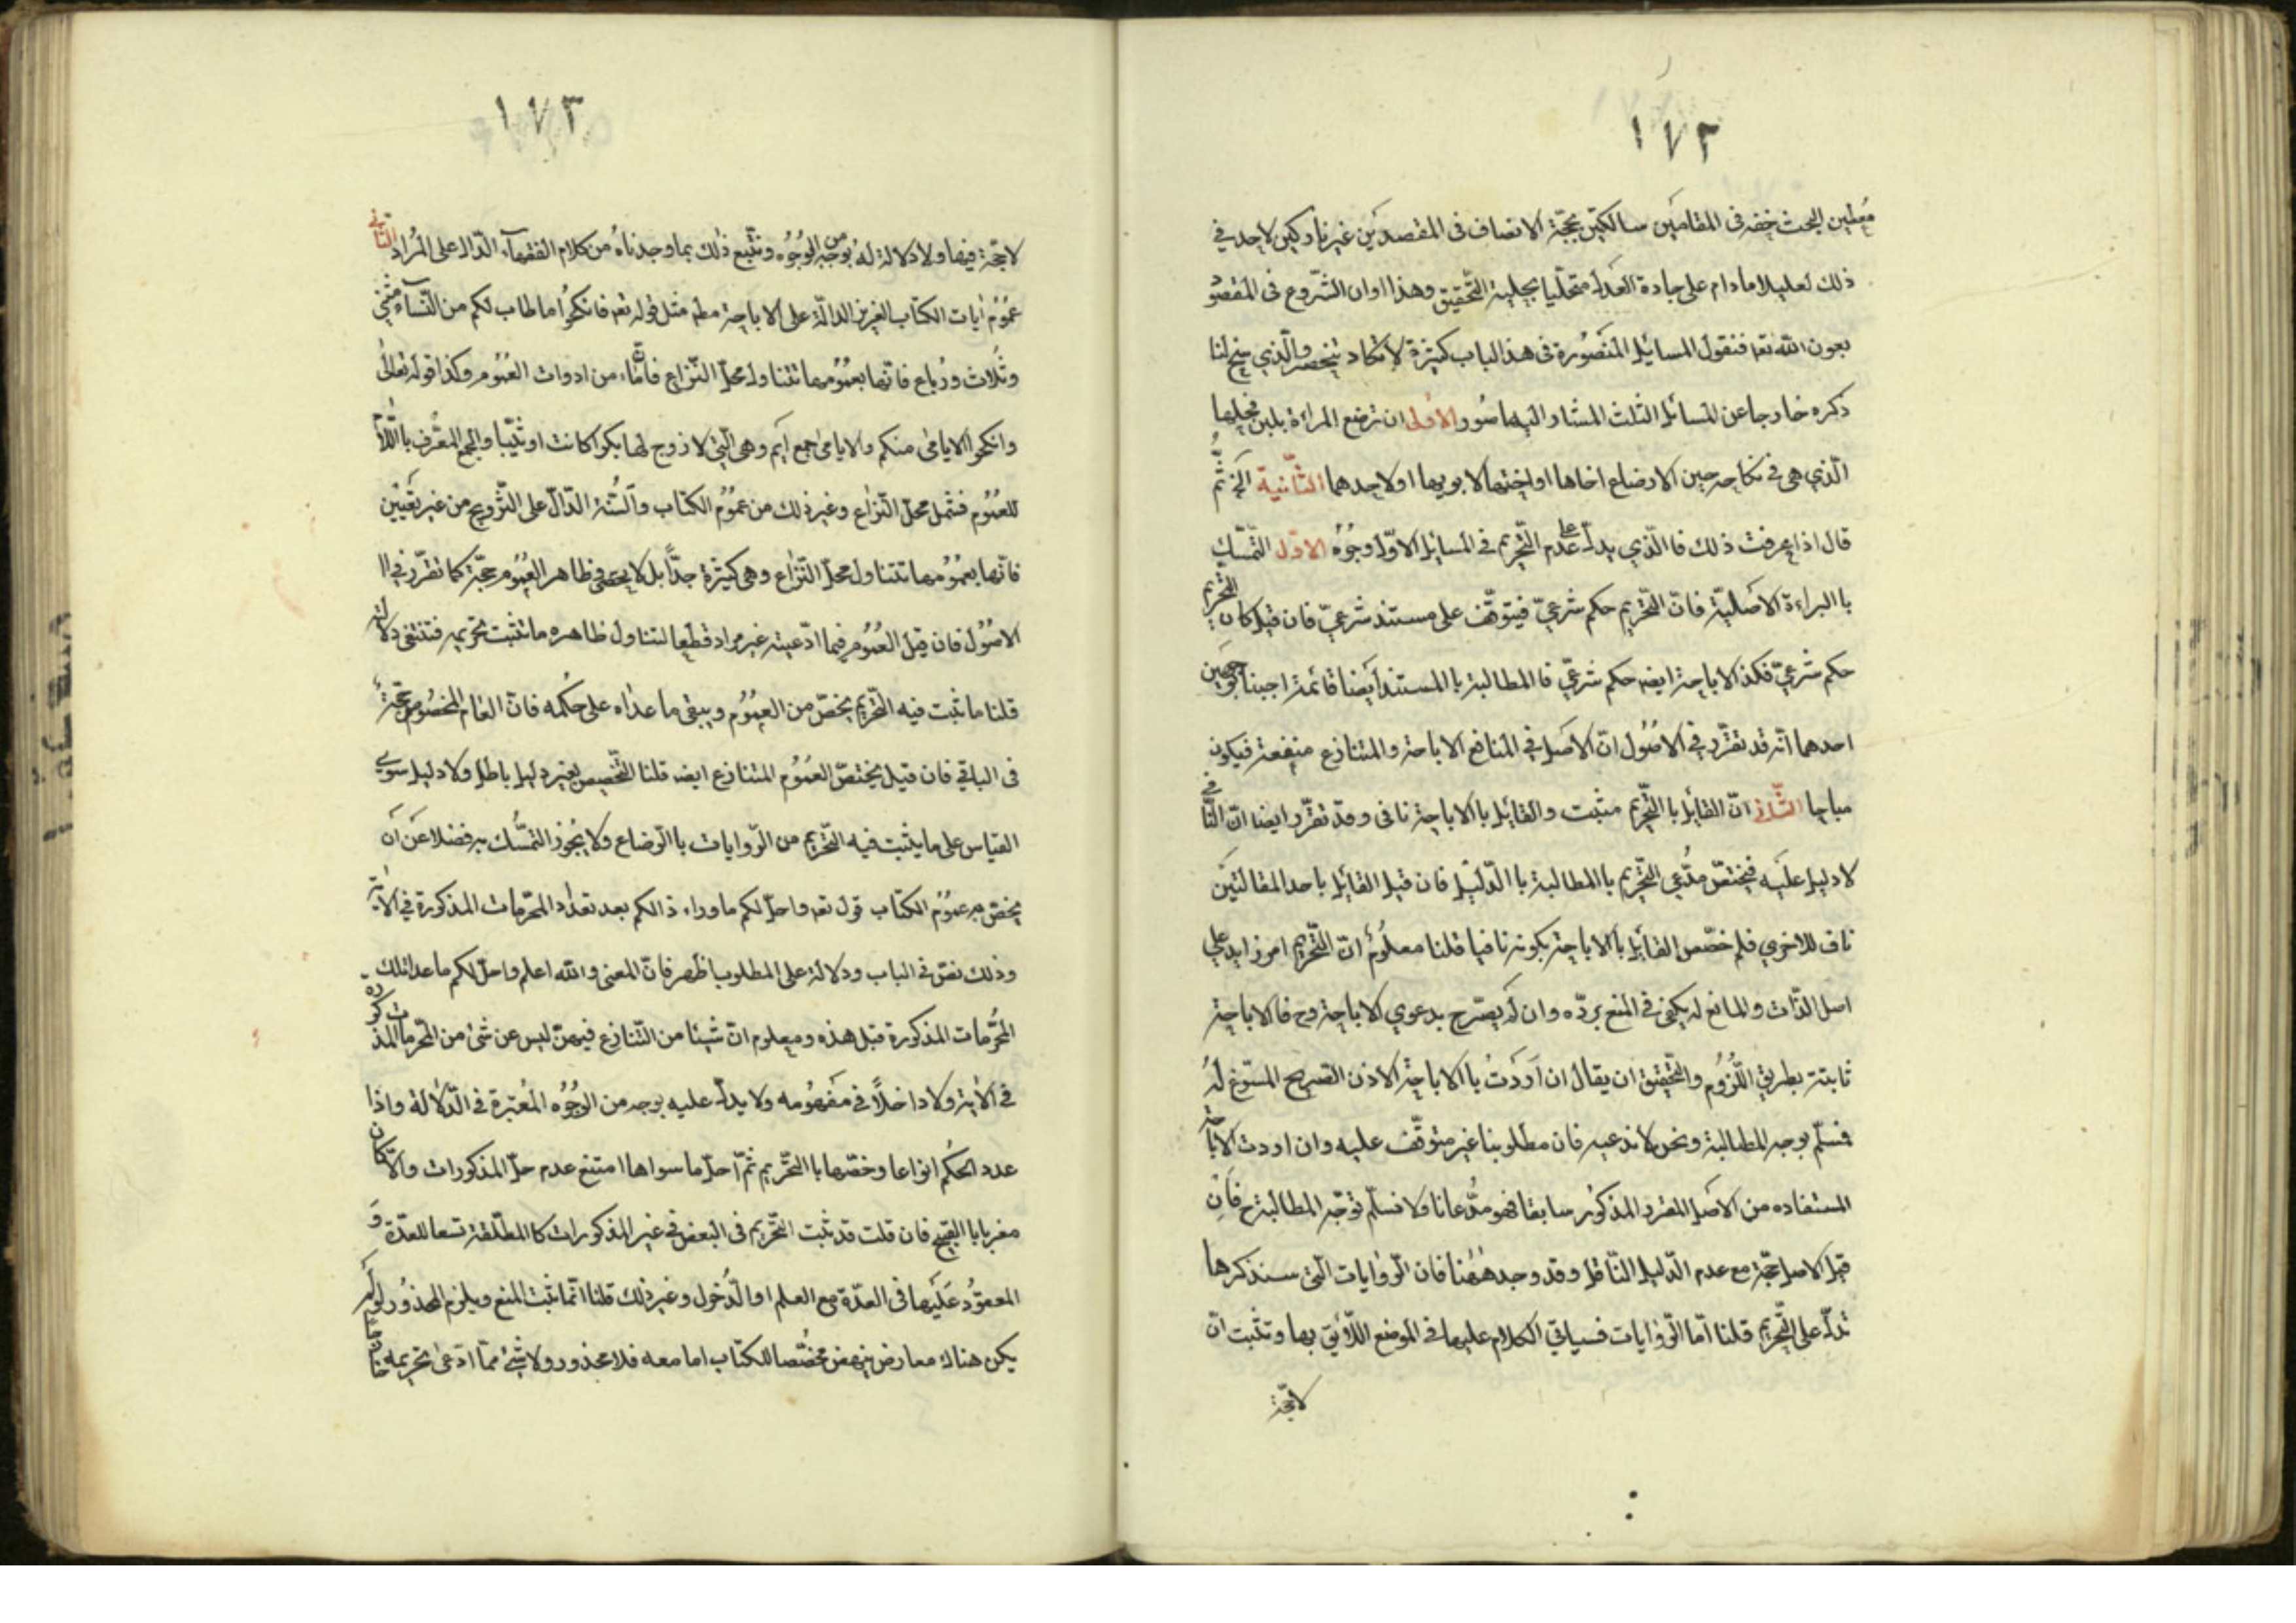 ١٧٢
معطين البحث حقه فى المقامين سالكين محجة الانصاف فى المقصدين غير تاركين لاحد فى
ذلك تعليلا مادام على جادة العدل متحليا بحلية التحقيق وهذا اوان الشروع فى المقصود
بعون الله تعه فنقول المسايل المتصورة فى هذا الباب كثيرة لا تكاد تنحصر والذي سنح لنا
ذكره خارجا عن المسائل الثلث المشار اليها صور الاولى ان ترضع المراة بلبن فحلها
الذي هى فى نكاحه حين الارضاع اخاها او اختها لابويها او لاحدهما الثانية الخ ثم
قال اذا عرفت ذلك فالذي يدل على عدم التحريم فى المسايل الاول وجوه الاول التمسك
با البراءة الاصلية فان التحريم حكم شرعي فيتوقف على مستند شرعي فان قيل كان التحريم
حكم شرعي فكذ الاباحة ايضه حكم شرعي فا المطالبة با المستند ايضا قائمة اجبنا بوجهين
احدهما انه قد تقرر في الاصول ان الاصل في المنافع الاباحة والمتنازع منفعة فيكون
مباحا الثاني ان القايل با التحريم مثبت والقايل با الاباحة نافى وقد تقرر ايضا ان النافي
لا دليل عليه فيختص مدعي التحريم با المطالبة با الدليل فان قيل القايل باحد المقالتين
ناف للاخرى فلم خصص القايل با الاباحة بكونه نافيا قلنا معلوم ان التحريم امر زايد على
اصل الذات والمانع له يكفى فى المنع برده وان لم يصرح بدعوى الاباحة وح فا الاباحة
ثابتة بطريق اللزوم والتحقيق ان يقال ان اردت با الاباحة الاذن الصريح المسوغ له
فسلم بوجه المطالبة ونحن لا ندعيه فان مطلوبنا غير متوقف عليه وان اردت الاباحة
المستفاده من الاصل المقرر المذكور سابقا فهو مدعانا ولا نسلم توجه المطالبة ح فان
قيل الاصل حجة مع عدم الدليل الناقل وقد وجد ههنا فان الروايات التى سنذكرها
تدل على التحريم قلنا اما الروايات فسياتي الكلام عليها في الموضع اللايق بها وتثبت ان
لا حجة
١٧٣
لا حجة فيها ولا دلالة له بوجه من الوجوه ونتبع ذلك بما وجدناه من كلام الفقهاء الدال على المراد الثاني
عموم ايات الكتاب العزيز الدالة على الاباحة مطه مثل قوله تعه فانكحوا ما طاب لكم من النساء مثنى
وثلاث ورباع فانها بعمومها تتناول محل النزاع فان ما من ادوات العموم وكذا قوله تعالى
وانكحوا الايامى منكم والايامى جمع ايم وهى التي لا زوج لها بكرا كانت او ثيبا والجمع المعرف با اللام
للعموم فتشمل محل النزاع وغير ذلك من عموم الكتاب والسنة الدال على التزويج من غير تعيين
فانها بعمومها تتناول محل النزاع وهى كثيرة جدا بل لا يحصى وظاهر العموم حجة كما تقرر في
الاصول فان قيل العموم فيما ادعيته غير مراد قطعا لتناول ظاهره ما تثبت تحريمه فتنتفى دلالته
قلنا ما ثبت فيه التحريم يخص من العموم ويبقى ما عداه على حكمه فان العام المخصوص حجة
فى الباقي فان قيل يختص العموم المتنازع ايضه قلنا التخصيص بغير دليل باطل ولا دليل سوى
القياس على ما يثبت فيه التحريم من الروايات با الرضاع ولا يجوز التمسك به فضلا عن ان
يخص به عموم الكتاب قوله تعه واحل لكم ما وراء ذالكم بعد تعداد المحرمات المذكورة في الاية
وذلك نص فى الباب ودلالة على المطلوب اظهر فان المعنى والله اعلم واحل لكم ما عدا تلك
المحرمات المذكورة قبل هذه ومعلوم ان شيئا من التنازع فيهن ليس عن شئ من المحرمات المذكوره
فى الاية ولا داخلا في مفهومه ولا يدل عليه بوجه من الوجوه المعتبرة فى الدلالة واذا
عدد الحكم انواعا وخصها با التحريم ثم احل ما سواها امتنع عدم حل المذكورات والا كان
مغريا با القبيح فان قلت قد ثبت التحريم فى البعض في غير المذكورات كا المطلقة تسعا للعدة و
المعقود عليها فى العدة مع العلم او الدخول وغير ذلك قلنا انما ثبت المنع ويلزم المحذور لو لم
يكن هناك معارض ينهض مخصصا للكتاب اما معه فلا محذور ولا شئ مما ادعى تحريمه